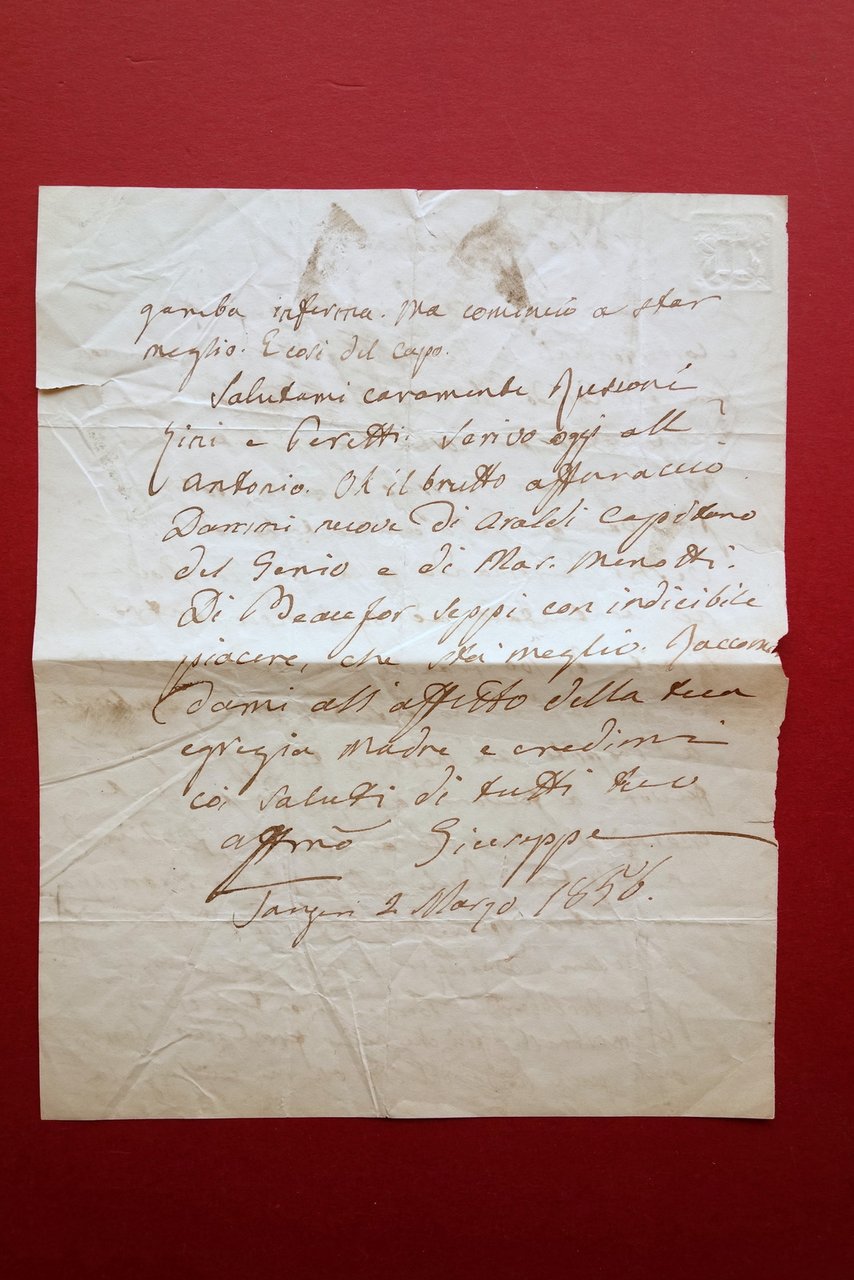 gamba inferma. Ma comincio a star
meglio. E così del capo.
Salutami caramente
Zini e Peretti. Scrivo oggi all'
Antonio. Oh il brutto affaraccio.
Dammi nuove di Araldi Capitano
del Genio e di Mar. Menotti.
Di Beaufor seppi con indicibile
piacere, che sta meglio. Raccoman
dami all'affetto della tua
egregia Madre e credimi
coi saluti di tutti tuo
affmo Giuseppe
2 Marzo 1856.